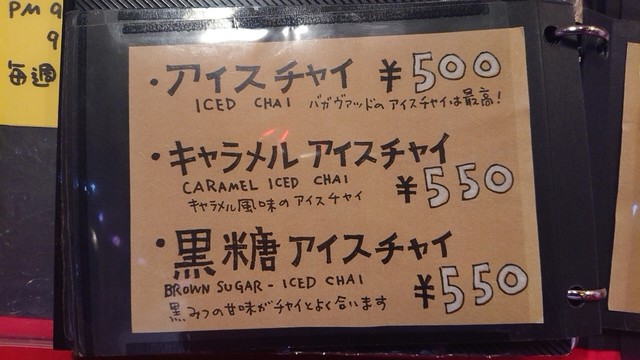 PM 9
9
毎週
・アイスチャイ ¥500
ICED CHAI バガヴァッドのアイスチャイは最高!
・キャラメルアイスチャイ
CARAMEL ICED CHAI ¥550
キャラメル風味のアイスチャイ
・黒糖アイスチャイ
BROWN SUGAR - ICED CHAI ¥550
黒みつの甘味がチャイとよく合います